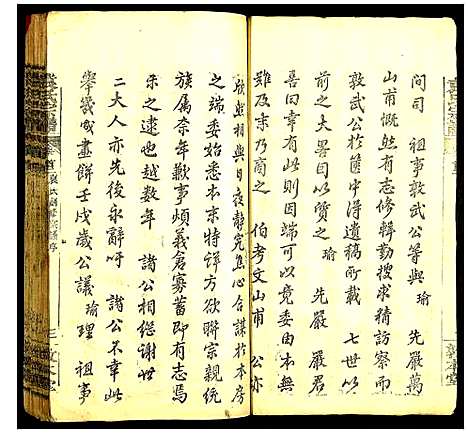 問司 祖事敦武公等與 瑜 先嚴萬
山甫慨然有志修輯勤搜求精訪察而
敦武公於篋中得遺稿所載 七世以
前之大畧因以質之 瑜 先嚴 嚴君
喜曰幸有此則因端可以竟委由本無
難及末乃商之 伯考文山甫 公亦
欣然相與日夜靜究焦心合謀於本房
之端委始悉本末特詳方欲聯宗親統
族属奈年歉事煩義倉寡蓄即有志焉
未之逮也越数年 諸公相繼谢世
二大人亦先後永辭吁 諸公不幸此
舉幾成畫餅壬戌歲公議 瑜 理 祖事
袁氏宗譜
卷首
三